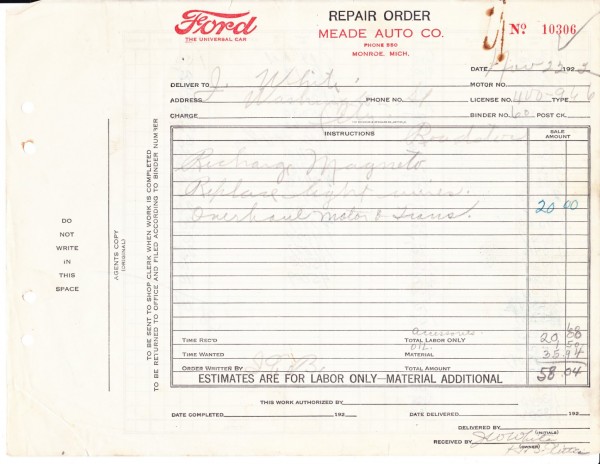 Ford
THE UNIVERSAL CAR
REPAIR ORDER
MEADE AUTO CO.
PHONE 550
MONROE, MICH.
No 10306
DATE Nov 23 1922
DELIVER TO J. White
MOTOR NO.
ADDRESS Washington St PHONE NO.
LICENSE NO. 400-966 TYPE
CHARGE
BINDER NO. 60 POST CK.
Roadster
INSTRUCTIONS
SALE AMOUNT
Recharge Magneto
Replace light wires.
Overhaul motor & trans. 20 00
DO NOT WRITE IN THIS SPACE
AGENTS COPY
(ORIGINAL)
TO BE SENT TO SHOP CLERK WHEN WORK IS COMPLETED
TO BE RETURNED TO OFFICE AND FILED ACCORDING TO BINDER NUMBER
accessories
TIME REC'D TOTAL LABOR ONLY 20
oil
TIME WANTED MATERIAL 35.94
ORDER WRITTEN BY TOTAL AMOUNT 58.04
ESTIMATES ARE FOR LABOR ONLY—MATERIAL ADDITIONAL
THIS WORK AUTHORIZED BY
DATE COMPLETED 192 DATE DELIVERED 192
DELIVERED BY
(INITIALS)
RECEIVED BY J W White
(OWNER)